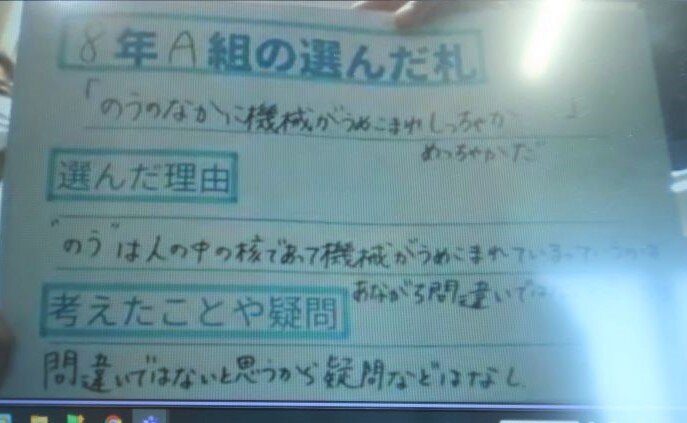 8年A組の選んだ札
「のうのなかに機械がうめこまれしっちゃか
めっちゃかだ
選んだ理由
"のう"は人の中の核であって機械がうめこまれているっていうのは
あながち間違いでは
考えたことや疑問
間違いではないと思うから疑問などはなし